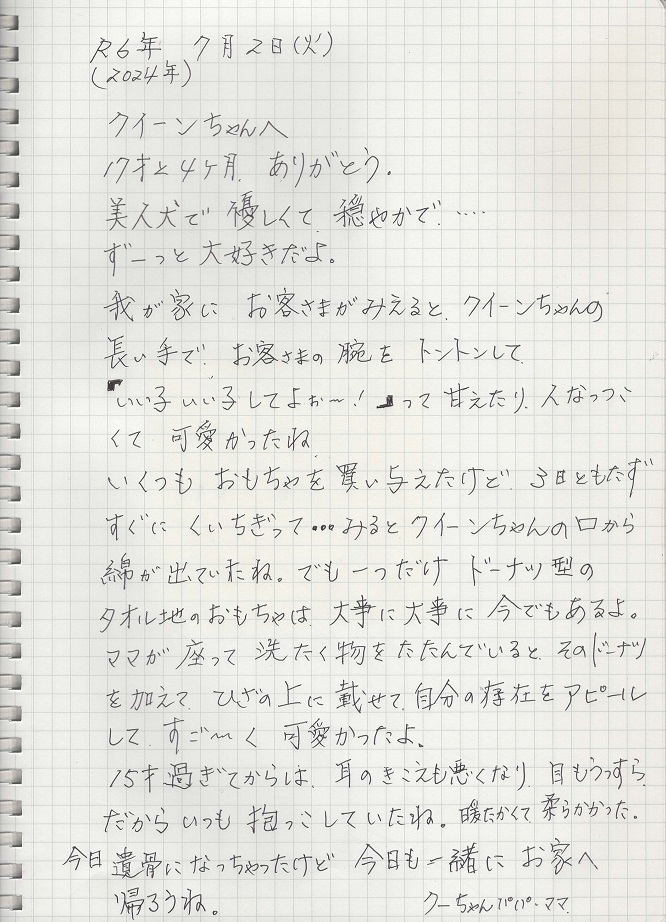 R6年 7月2日(火)
(2024年)
クイーンちゃんへ
17才と4ヶ月、ありがとう。
美人犬で 優しくて、穏やかで、‥‥
ずーっと大好きだよ。
我が家に お客さまがみえると、クイーンちゃんの
長い手で、お客さまの 腕を トントンして、
「いい子いい子してよぉ〜!」って 甘えたり、人なつっこ
くて 可愛かったね
いくつも おもちゃを 買い与えたけど、3日ともたず
すぐに くいちぎって…みるとクイーンちゃんの口から
綿が出ていたね。でも一つだけ ドーナツ型の
タオル地のおもちゃは、大事に大事に 今でもあるよ。
ママが 座って 洗たく物をたたんでいると、そのドーナツ
を加えて、ひざの上に 載せて、自分の存在をアピール
して、すご〜く 可愛かったよ。
15才過ぎてからは、耳のきこえも悪くなり、目もうっすら、
だからいつも 抱っこしていたね。暖たかくて 柔らかかった。
今日 遺骨になっちゃったけど 今日も一緒に お家へ
帰ろうね。
クーちゃんパパ・ママ